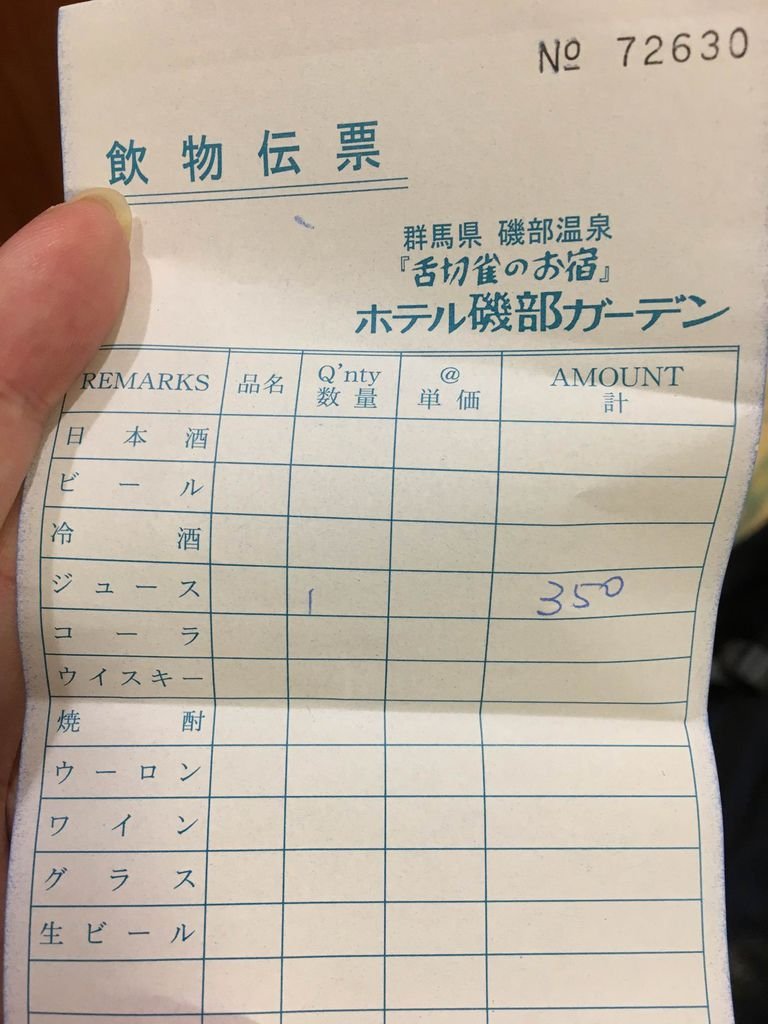 № 72630
飲物伝票
群馬県 磯部温泉
『舌切雀のお宿』
ホテル磯部ガーデン
REMARKS 品名 Q'nty 数量 @ 単価 AMOUNT 計
日本酒
ビール
冷酒
ジュース 1 350
コーラ
ウイスキー
焼酎
ウーロン
ワイン
グラス
生ビール